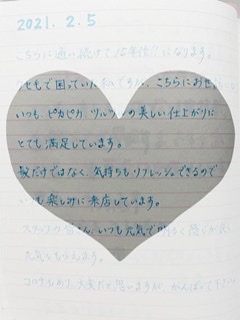 2021. 2. 5
こちらに通い続けて15年位?になります。
クセもで困っていた私ですが、こちらにお世
いつも、ピカピカ、ツルツルの美しい仕上がりに
とても満足しています。
髪だけではなく、気持ちもリフレッシュできるので
いつも楽しみに来店しています。
スタッフの皆さん、いつも元気で明るく感じが良く
元気をもらえます。
コロナもあり、大変だと思いますが がんばって下さい